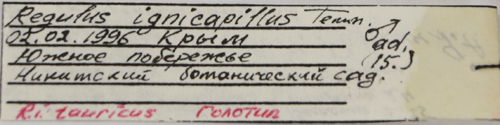 Regulus ignicapillus Temm. ♂
02.02.1996 Крым ad.
Южное побережье (15.)
Никитский ботанический сад.
R.i. tauricus голотип